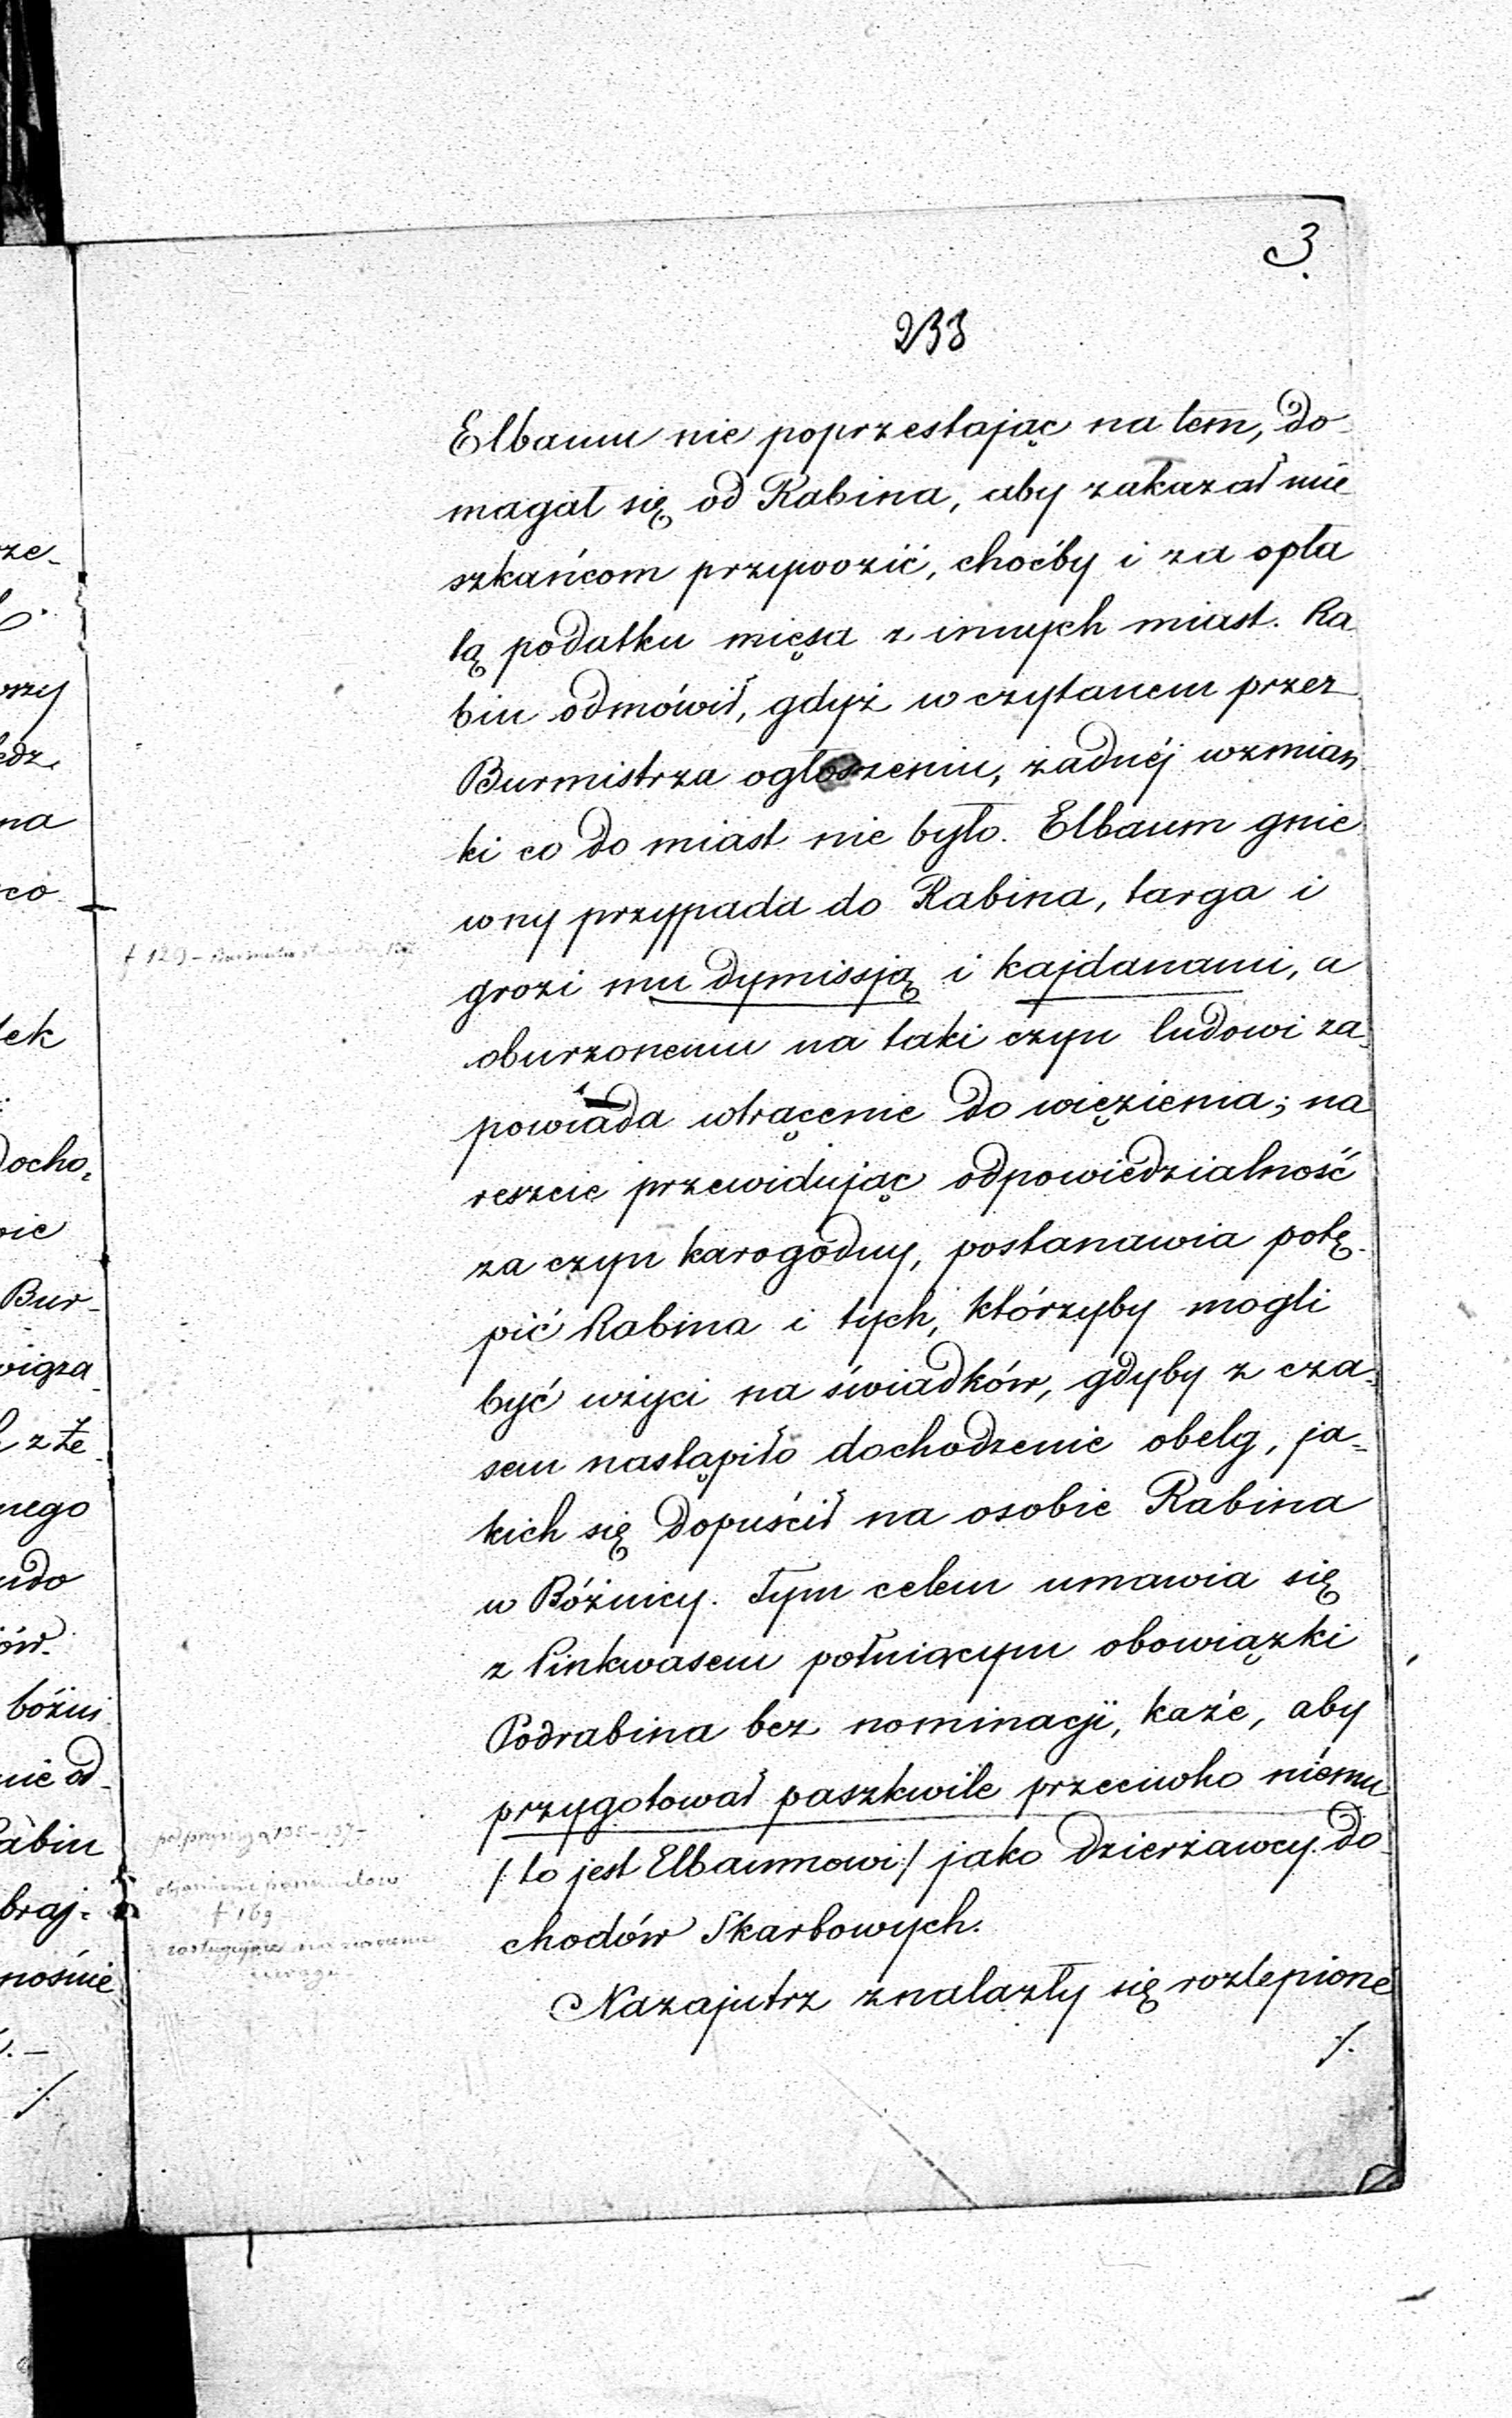 3.
233
Elbaum nie poprzestając na tem, do
magał się od Rabina, aby zakazał mie
szkańcom przywozić, choćby i za opła
tą podatku mięsa z innych miast. Ra
bin odmówił, gdyż w czytanem przez
Burmistrza ogłoszeniu, żadnéj wzmian
ki co do miast nie było. Elbaum gnie
wny przypada do Rabina, targa i
grozi mu dymissją i kajdanami, a
oburzonemu na taki czyn ludowi za-
powiada wtrącenie do więzienia; na
reszcie przewidując odpowiedzialność
za czyn karogodny, postanawia potę-
pić Rabina i tych, którzyby mogli
być użyci na świadków, gdyby z cza-
sem nastąpiło dochodzenie obelg, ja-
kich się dopuścił na osobie Rabina
w Bóżnicy. Tym celem umawia się
z Pinkwasem pełniącym obowiązki
Podrabina bez nominacji, każe, aby
przygotował paszkwile przeciwko niemu
/: to jest Elbaumowi :/ jako dzierżawcy do-
chodów Skarbowych.
Nazajutrz znalazły się rozlepione
./.
ze-
na
co
tek
docho-
Bur-
z że
nego
bóżni
nie od-
Rabin
braj-
nośnie
./.
f 129 -
f 169